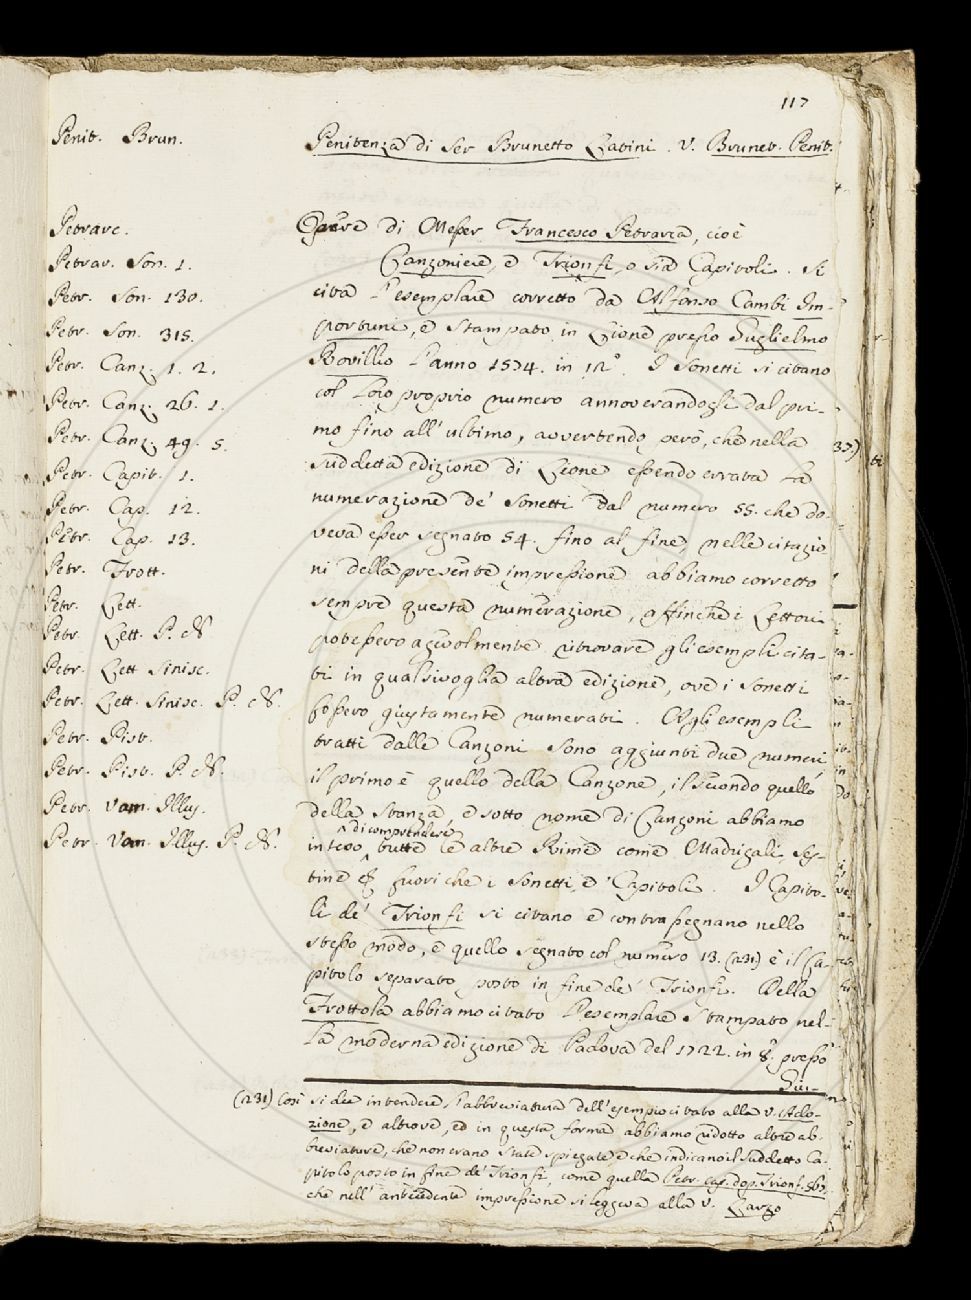 117
Penit. Brun.
Penitenza di Ser Brunetto Latini. V. Brunet. Penit.
Petrarc.
Petrar. Son. 1.
Petr. Son. 130.
Petr. Son. 315.
Petr. Canz. 1. 2.
Petr. Canz. 26. 1.
Petr. Canz. 49. 5.
Petr. Capit. 1.
Petr. Cap. 12.
Petr. Cap. 13.
Petr. Frott.
Petr. Lett.
Petr. Lett. P. N.
Petr. Lett Sinisc.
Petr. Lett. Sinisc. P. N.
Petr. Pist.
Petr. Pist. P. N.
Petr. Vom. Illus.
Petr. Vom. Illus. P. N.
Opere di Messer Francesco Petrarca, cioè
Canzoniere, e Trionfi, o sia Capitoli. Si
cita l'esemplare corretto da Alfonso Cambi Im-
portuni, e stampato in Lione presso Guglielmo
Rovillio l'anno 1574. in 12º. I Sonetti si citano
col loro proprio numero annoverandogli dal pri-
mo fino all'ultimo, avvertendo però, che nella
suddetta edizione di Lione essendo errata la
numerazione de' Sonetti dal numero 55. che do-
veva esser segnato 54. fino al fine, nelle citazio
ni della presente impressione abbiamo corretto
sempre questa numerazione, affinchè i Lettori
potessero agevolmente ritrovare gli esempli cita-
ti in qualsivoglia altra edizione, ove i Sonetti
fossero giustamente numerati. Agli esempli
tratti dalle Canzoni sono aggiunti due numeri,
il primo è quello della Canzone, il secondo quello
della Stanza, e sotto nome di Canzoni abbiamo
di comprendere
inteso tutte le altre Rime come Madrigali, Ses-
tine &c fuori che i Sonetti, e Capitoli. I Capito-
li de' Trionfi si citano e contrassegnano nello
stesso modo, e quello segnato col numero 13. (231) è il Ca-
pitolo separato posto in fine de' Trionfi. Della
Frottola abbiamo citato l'esemplare stampato nel-
la moderna edizione di Padova del 1722. in 8º. presso
Giu-
(231) Così si dee intendere l'abbreviatura dell'esempio citato alla V. Ado-
zione, e altrove, ed in questa forma abbiamo ridotto altre ab-
breviature, che non erano state spiegate e che indicano il suddetto Ca-
pitolo posto in fine de' Trionfi, come quella Petr. cap. dop. Trionf. 567,
che nell'antecedente impressione si leggeva alla V. Largo